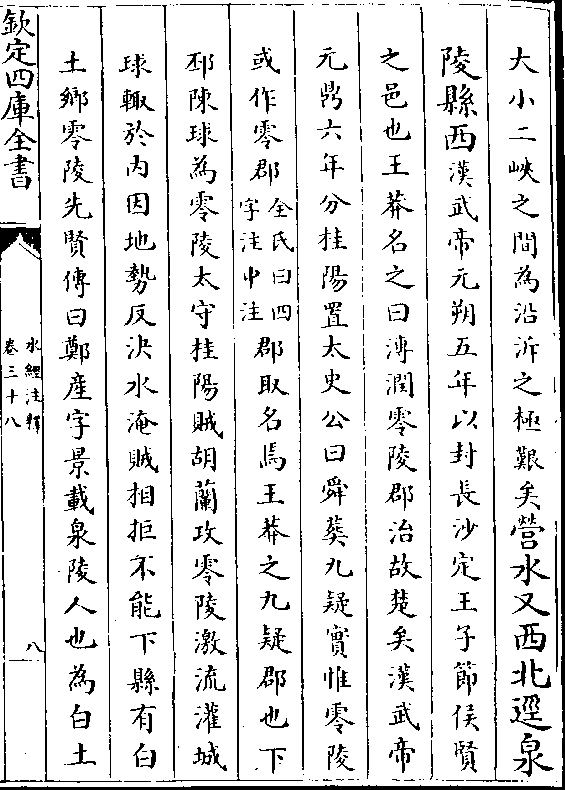 大小二峽之間為沿泝之極艱矣營水又西北逕泉
陵縣西漢武帝元朔五年以封長沙定王子節侯賢
之邑也王莽名之曰溥潤零陵郡治故楚矣漢武帝
元鼎六年分桂陽置太史公曰舜葬九疑實惟零陵
或作零郡全氏曰四字注中注郡取名焉王莽之九疑郡也下
邳陳球為零陵太守桂陽賊胡蘭攻零陵激流灌城
球輙於内因地勢反決水淹賊相拒不能下縣有白
土鄉零陵先賢傳曰鄭產字景載泉陵人也為白土
欽定四庫全書
水經注釋
卷三十八
八